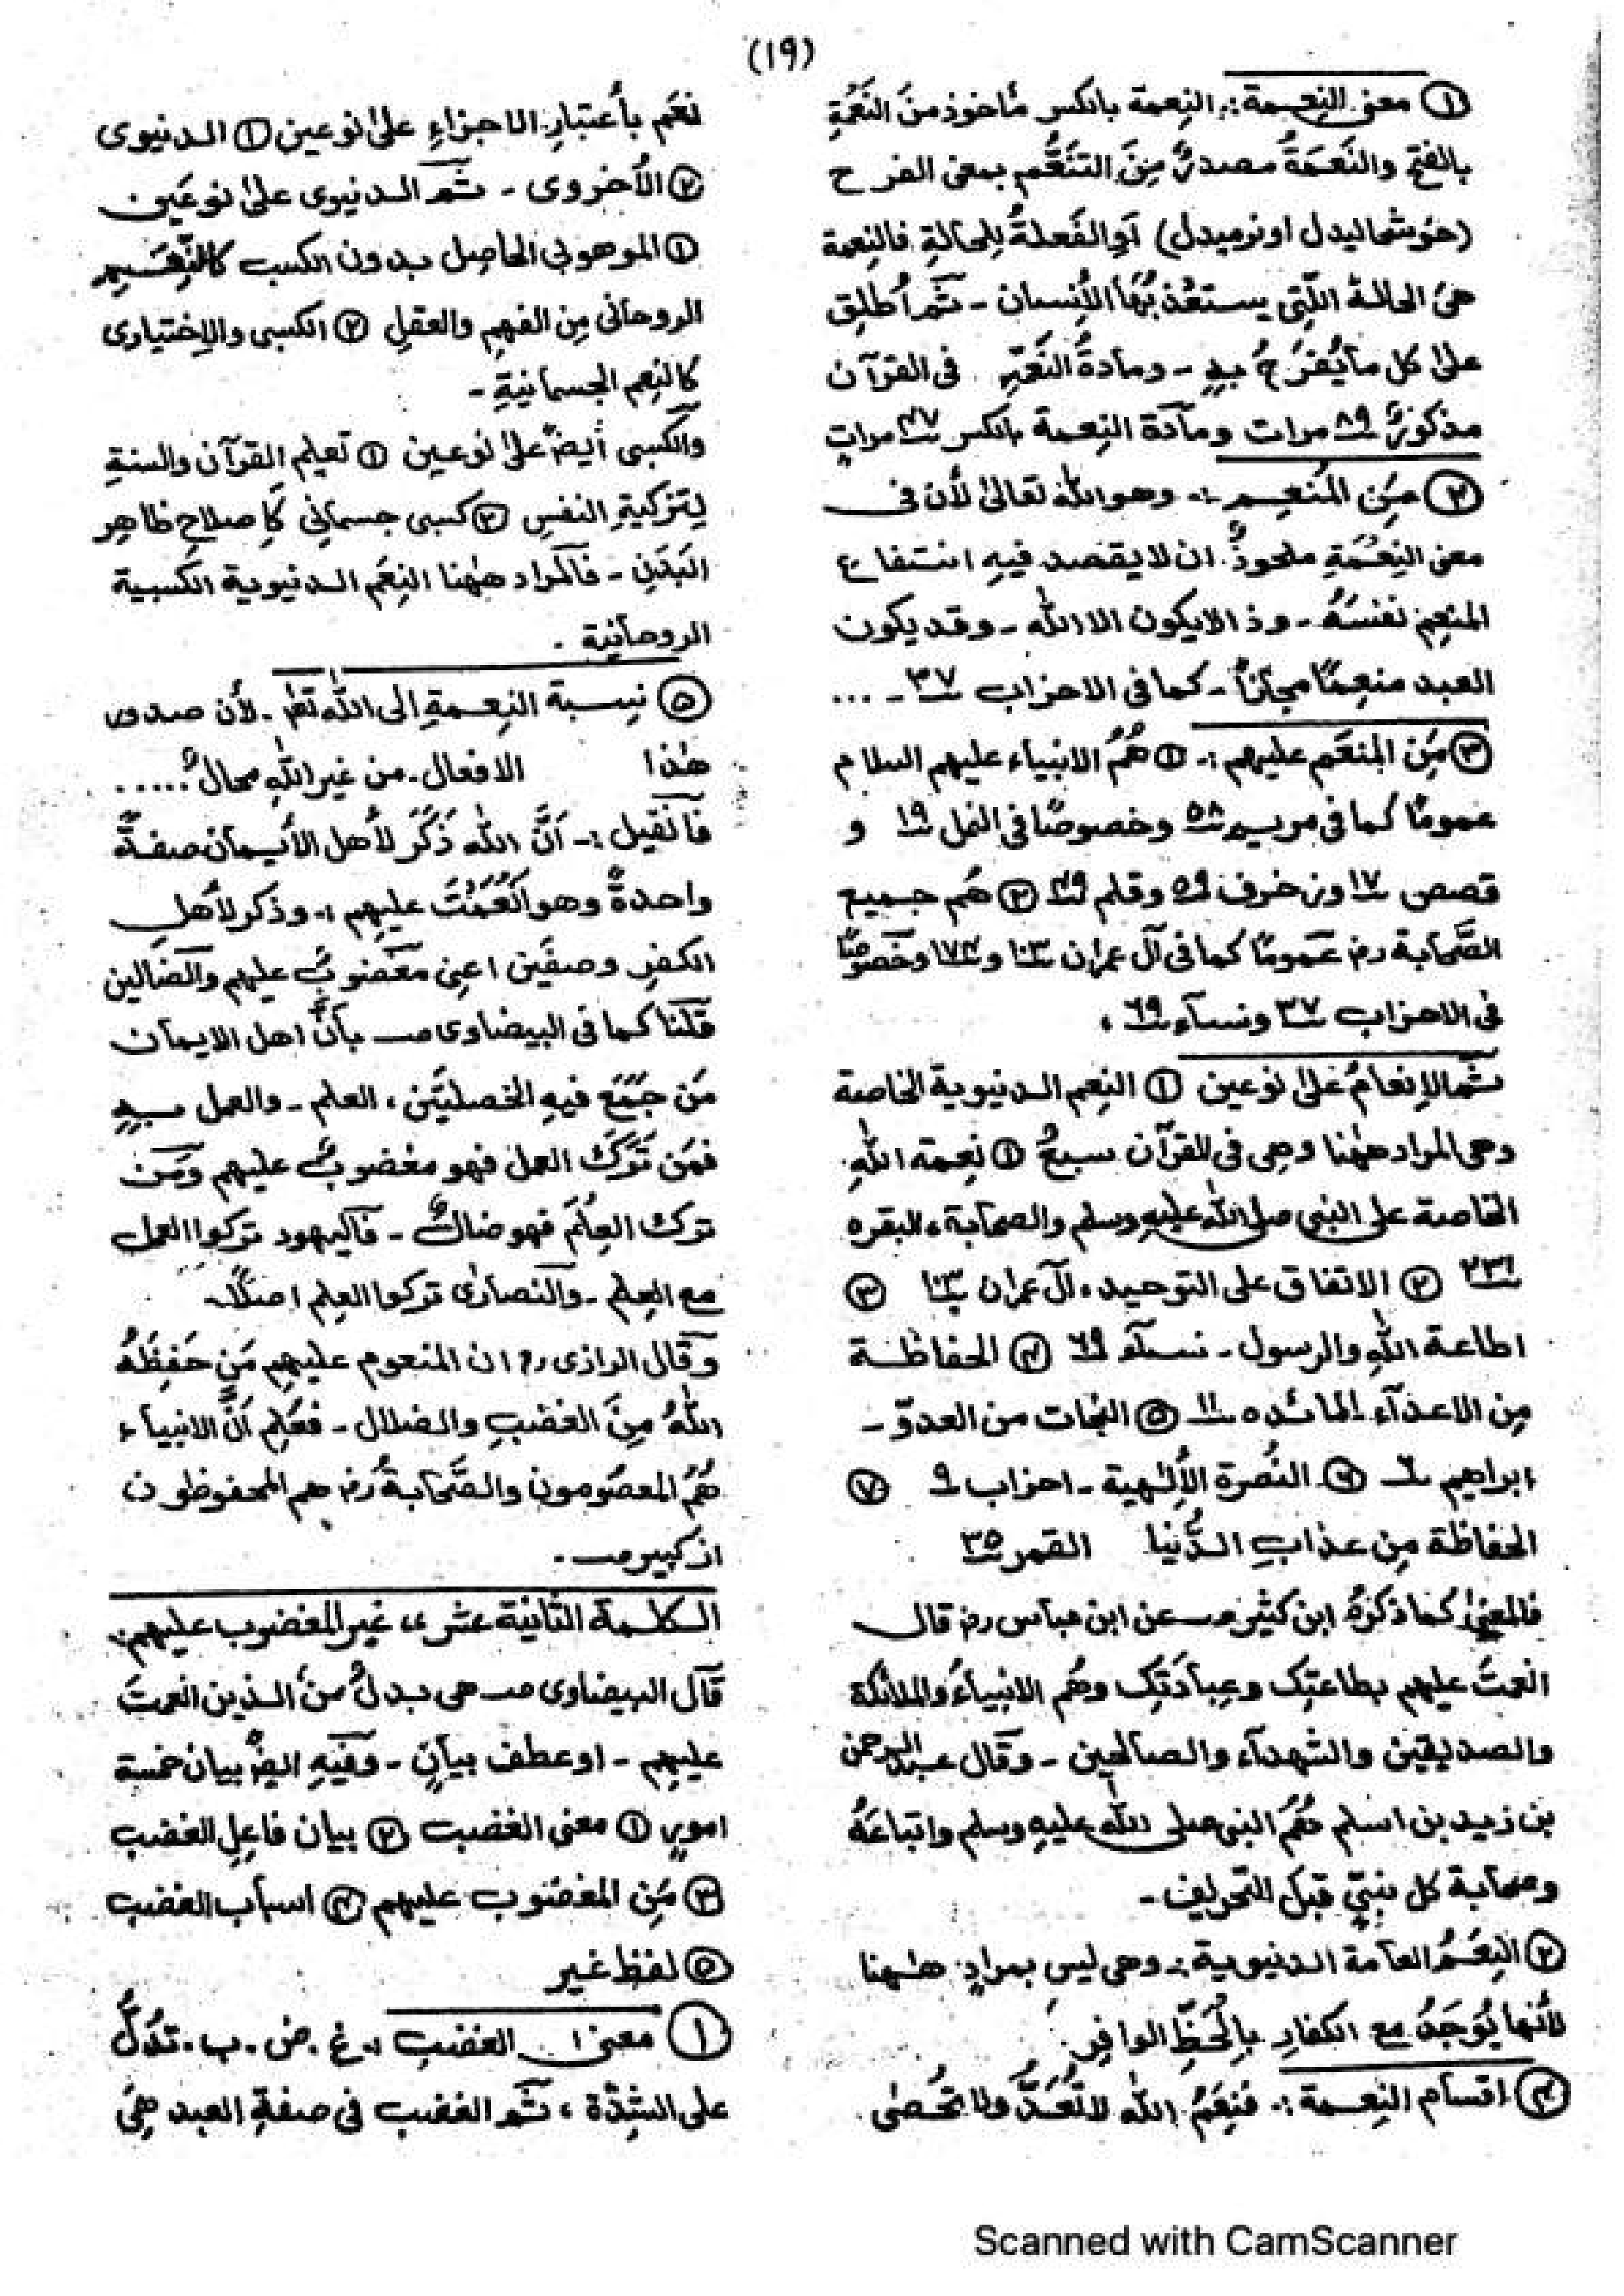 (۱۹)
① معنی النِعمة:۔ النِعمة بالکسر مأخوذ منَ النَعْمَةِ
بالفتح والنَعمَةُ مصدرٌ مِنَ التنَعُّم بمعنی الفرح
(خوشحالیدل اونرمیدل) اَوِالفَعلةُ لِلحالةِ فالنِعمة
هیَ الحالة الّتِی یستعذ بُهَا الأنسان ۔ ثم أُطلِق
علیٰ کل مایُفرَحُ بہٖ ۔ ومادةُ النَعَمِ فی القرآن
مذکورٌ ۸۹ مرات ومآدة النِعمة بالکسر ۳۷ مراتٍ
② مَنِ المُنعِم:۔ وهو الله تعالیٰ لأن فی
معنی النِعْمَةِ ملحوذٌ ان لایقصد فیهِ انتفاع
المنعِم نفسَهُ ۔ وذا لایکون الا الله ۔ وقد یکون
العبد منعِمًا مجازاً ۔ کما فی الاحزاب ۳۷ ۔ ...
③ مَنِ المنعَم علیہم:۔ ① هُمُ الانبیاء علیهم السلام
عمومًا کما فی مریم ۵۸ وخصوصًا فی النمل ۱۹ و
قصص ۱۷ وزخرف ۵۹ وقلم ۴۹ ② هُم جمیع
الصَّحابة رض عمومًا کما فی آل عمران ۱۰۳ و ۱۷۴ وخصوصًا
فی الاحزاب ۳۷ ونسآء ۶۹ ،
ثم الإنعامُ علیٰ نوعین ① النِعم الدنیویة الخاصة
وهی المراد هٰهُنا وهی فی القرآن سبعٌ ① نِعمة اللهِ
الخاصة علی النبی صلی الله علیهِ وسلم والصحآبة ، البقره
۲۳۱ ② الاتفاق علی التوحید ، آل عمران ۱۰۳ ③
اطاعة اللهِ والرسول ۔ نسآء ۶۹ ④ الحفاظة
مِن الاعدآء المائده ۱۱ ⑤ النجات من العدوّ ۔
ابراهیم ۶ ⑥ النُصرة الأِلٰہیة ۔ احزاب ۹ ⑦
الحفاظة مِن عذابِ الدُّنیا القمر ۳۵
فالمعنیٰ کما ذکرَهُ ابن کثیر عن ابن عباس رض قال
انعمتَ علیهم بطاعتِک وعِبآدَتِک وهُم الانبیاءُ والملائکة
والصدیقین والشهدآء والصالحین ۔ وقال عبدالرحمن
بن زید بن اسلم هُمُ النبی صلی الله علیهِ وسلم واتباعَهُ
وصحابة کل نبیٍّ قبل التحریف ۔
② النِعَمُ العآمة الدنیویة:۔ وهی لیس بمرادٍ هٰهنا
لأنها یُوجَدُ مع الکفارِ بِالحَظِّ الوافِر.
④ اقسام النِعمة:۔ فنِعَمُ الله لا تُعَدُّ ولا تُحصٰی
نِعَم بأعتبارِ الاجزاءِ علیٰ نوعین ① الدنیوی
② الأخروی ۔ ثُم الدنیوی علیٰ نوعَین
① الموهوبی الحاصِل بدون الکسب
الروحانی مِن الفهمِ والعقلِ ② الکسبی والاِختیاری
کالنِعم الجسمانیةِ ۔
والکسبی أیضً علیٰ نوعین ① تعلیم القرآن والسنةِ
لِتزکیةِ النفسِ ② کسبی جسمانی کَاِصلاحِ ظاهِر
البَدَنِ ۔ فالمراد هٰهُنا النِعَم الدنیویة الکسبیة
الروحانیة .
⑤ نِسبة النِعمةِ الی الله تعٰ ۔ لأن صدور
هٰذا الافعال ۔ من غیر اللهِ محالٌ .....
فَاَنْقیل:۔ اَنَّ الله ذَکَرَ لأهل الأیمان صفةً
واحدةً وهو اَنْعَمْتَ علیهِم:۔ وذکر لأهل
الکفرِ وصفَین اعنِی مغضوبٌ علیهم والضالین
قلنا کما فی البیضاوی ص بأنَّ اهل الایمان
مَن جَمَعَ فیهِ الخصلتَین ، العلم ۔ والعمل بہٖ
فمَن تَرَکَ العمل فهو مغضوبٌ علیهم ومَن
ترک العِلمَ فهو ضالٌ ۔ فالیهود ترکوا العمل
مع العِلم ۔ والنصاریٰ ترکوا العِلم اصلًا۔
وقال الرازی رح ان المنعوم علیهِم مَن حَفِظَهُ
اللهُ مِنَ الغضبِ والضلال ۔ فعُلِم اَنَّ الانبیاء
هُمُ المعصُومون والصَّحَابةُ رض هم المحفوظون
از کبیر ص ۔
الکلمة الثانیة عشر ،، غیر المغضوب علیهم:
قال البیضاوی ص هی بدلٌ منَ الذین انعمتَ
علیهِم ۔ او عطف بیانٍ ۔ وفیهِ ایضً بیان خمسة
امورٍ ① معنی الغضب ② بیان فاعِلِ الغضب
③ مَنِ المغضوب علیهم ④ اسباب الغضب
⑤ لفظ غیر
① معنی الغضبِ :۔ غ . ض . ب . تدُلُّ
علی الشِدّة ، ثم الغضب فی صفةِ العبد هِیَ
Scanned with CamScanner